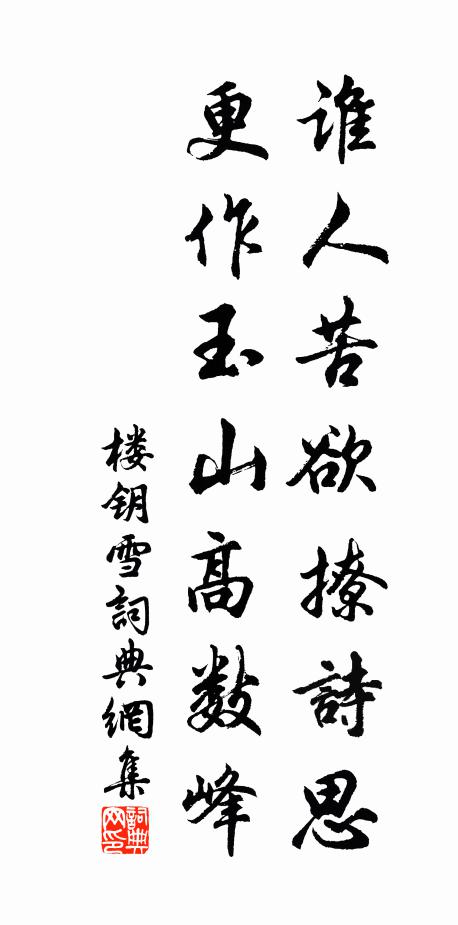 誰人苦欲撩詩思
更作玉山高数峰
楼钥雪詞典網集
詞典网印